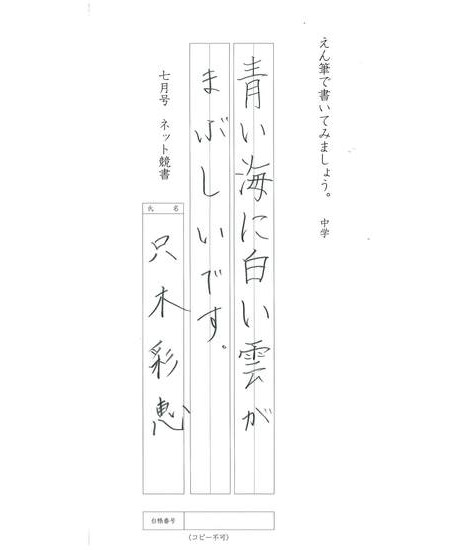 えん筆で書いてみましょう。 中学
青い海に白い雲が
まぶしいです。
七月号 ネット競書
氏名
只木彩恵
台帳番号
(コピー不可)